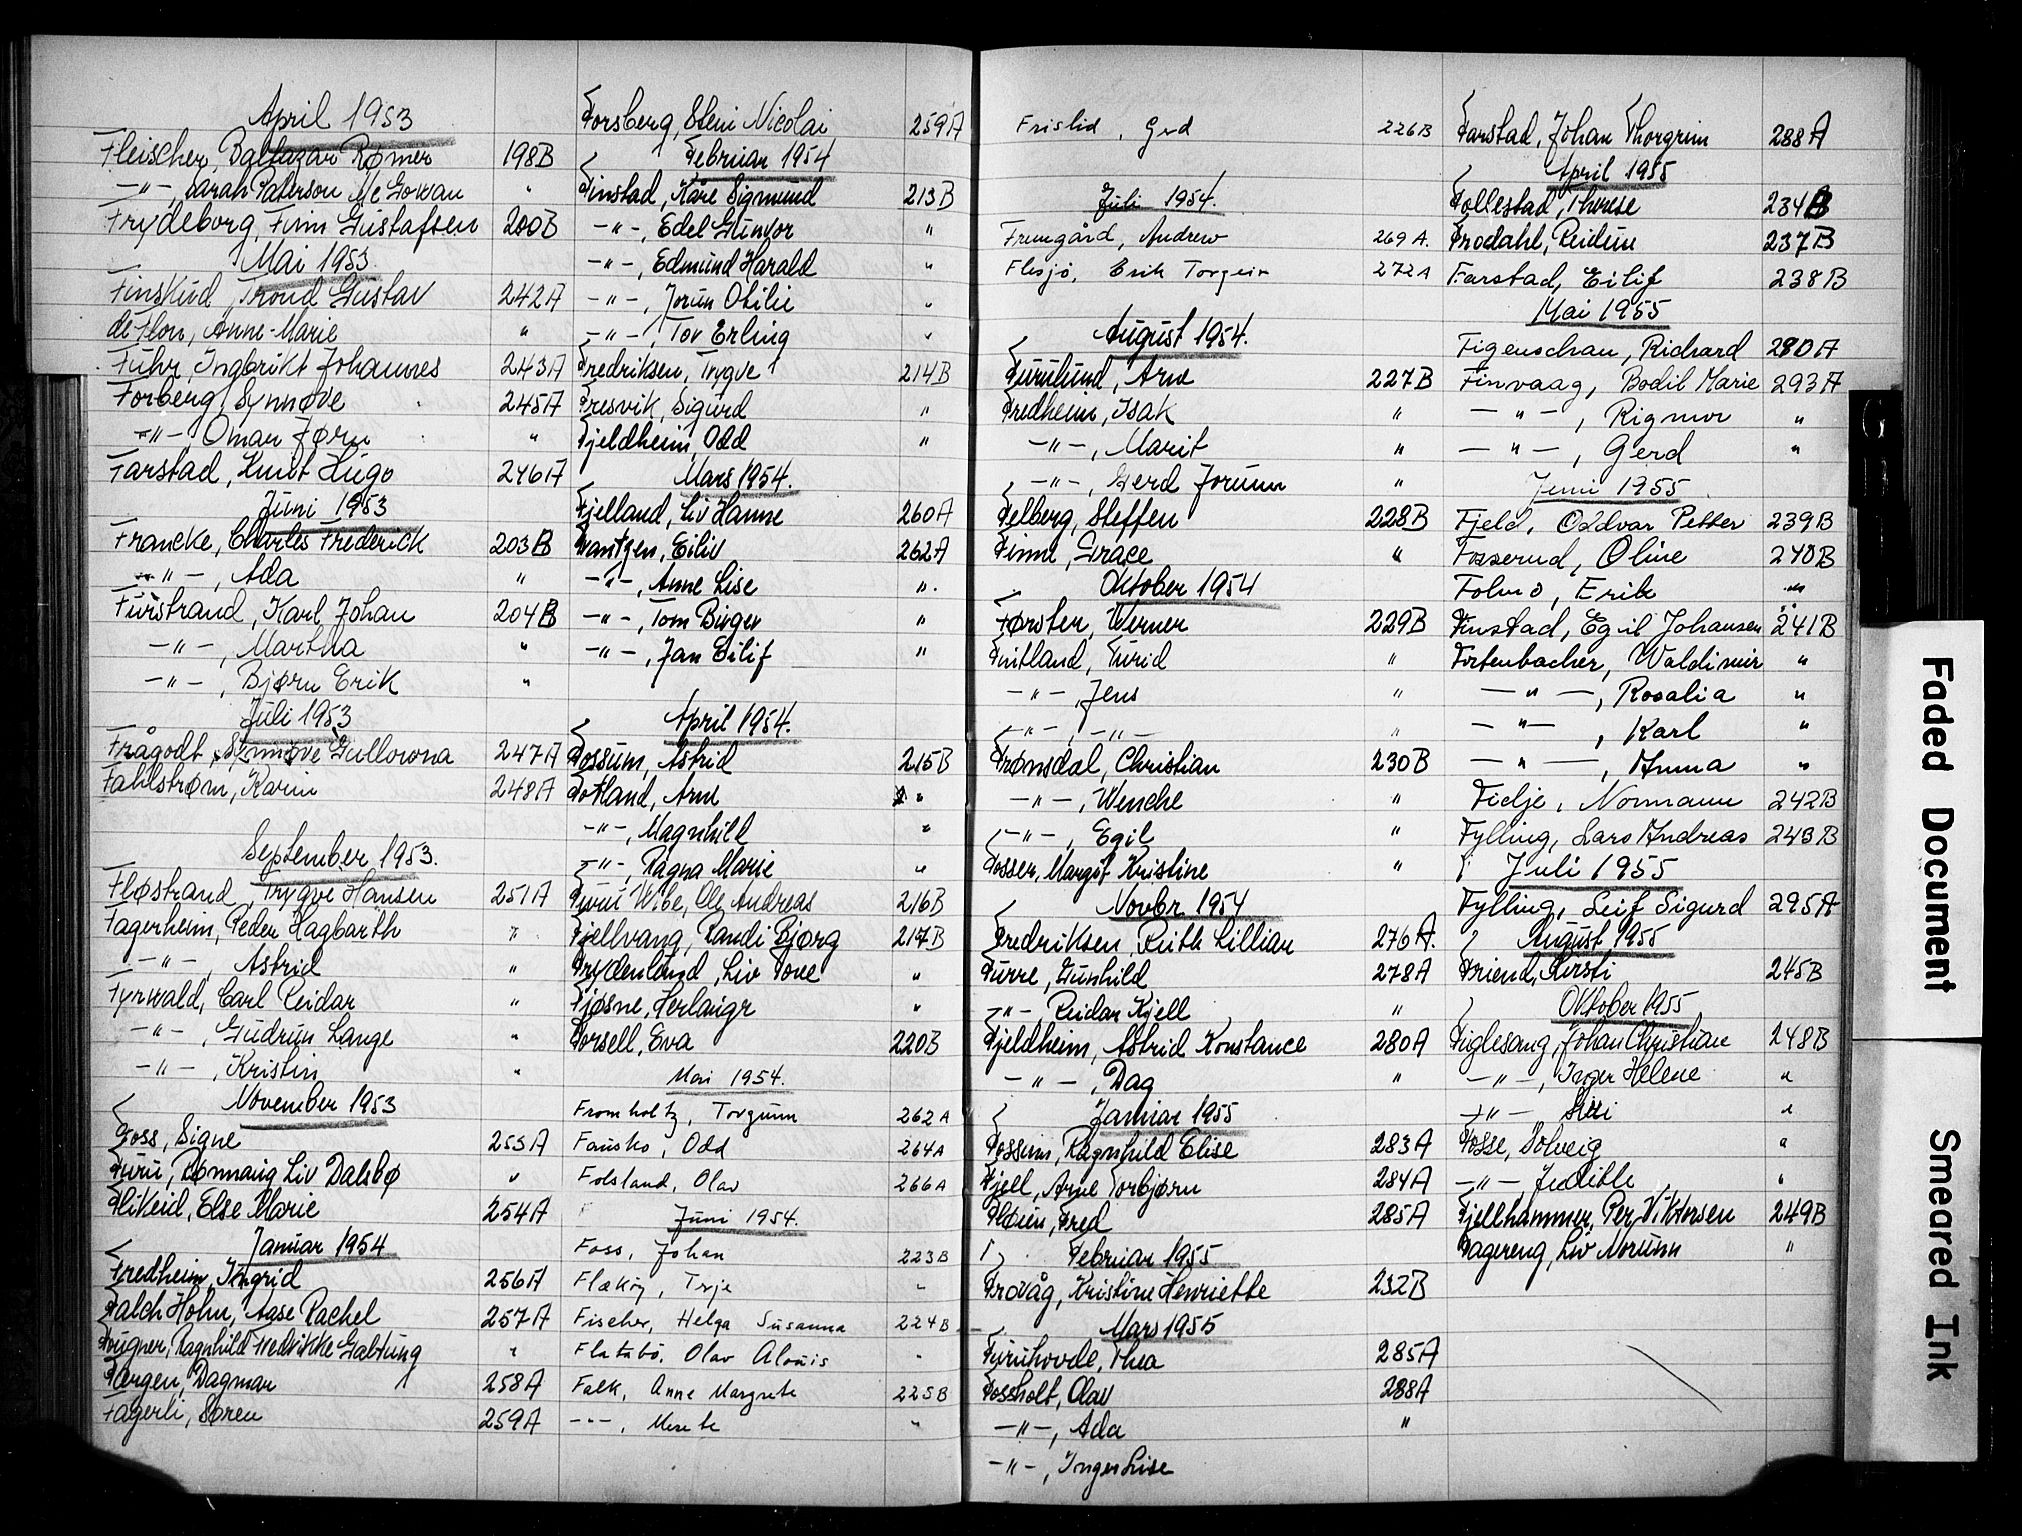 April 1953
Fleischer, Baltazar Rømer 198B
-"-, Sarah Paterson Mc Gowan "
Frydeborg, Finn Gustafsen 200B
Mai 1953
Finskud, Trond Gustav 242A
de Flon, Anne-Marie "
Fuhr, Ingbrikt Johannes 243A
Forberg, Synnøve 245A
-"-, Omar Jørn "
Farstad, Knut Hugo 246A
Juni 1953
Francke, Charles Frederick 203B
-"-, Ada "
Furstrand, Karl Johan 204B
-"-, Martha "
-"-, Bjørn Erik "
Juli 1953
Frågodt, Synnøve Gullowna 247A
Fahlstrøm, Karin 248A
September 1953.
Fløstrand, Trygve Hansen 251A
Fagerheim, Peder Hagbarth "
-"-, Astrid "
Fyrwald, Carl Reidar "
-"-, Gudrun Lange "
-"-, Kristin "
November 1953
Foss, Signe 253A
Furu, Rønnaug Liv Dalsbø "
Flikeid, Else Marie 254A
Januar 1954
Fredheim, Ingrid 256A
Falch Hohn, Aase Rachel 257A
Fougner, Ragnhild Hedvikke Gabtung "
Færgen, Dagmar 258A
Fagerli, Søren 259A
Forsberg, Stein Nicolai 259A
Februar 1954
Finstad, Kåre Sigmund 213B
-"-, Edel Gunvor "
-"-, Edmund Harald "
-"-, Jorun Otilie "
-"-, Tov Erling "
Fredriksen, Trygve 214B
Fresvik, Sigurd "
Fjeldheim, Odd "
Mars 1954.
Fjelland, Liv Hanne 260A
Fantgen, Eiliv 262A
-"-, Anne Lise "
-"-, Tom Birger "
-"-, Jan Eilif "
April 1954.
Fossum, Astrid 215B
Fotland, Arne "
-"-, Magnhild "
-"-, Ragna Marie "
Furu Wibe, Ole Andreas 216B
Fjellvang, Randi Bjørg 217B
Frydenlund, Liv Tove "
Fjøsne, Herlaugr "
Forsell, Eva 220B
Mai 1954.
Fromholtz, Torgunn 262A
Fausko, Odd 264A
Folsland, Olav 266A
Juni 1954.
Foss, Johan 223B
Flækøy, Terje "
Fischer, Helga Susanna 224B
Flatabö, Olav Alouis "
Falk, Anne Margrete 225B
-"-, Merete "
Frislid, Gerd 226B
Juli 1954.
Fremgård, Andrew 269A.
Flesjø, Erik Torgeir 272A
August 1954.
Furulund, Arne 227B
Fredheim, Isak "
-"-, Marit "
-"-, Gerd Jorunn "
Felberg, Steffen 228B
Finne, Grace "
Oktober 1954
Førster, Werner 229B
Fuitland, Turid "
-"-, Jens "
-"-, -"- "
Frønsdal, Christian 230B
-"-, Wenche "
-"-, Egil "
Fosser, Margot Kristine "
Novbr. 1954
Fredriksen, Ruth Lillian 276A.
Furre, Gunhild 278A
-"- Reidar Kjell "
Fjeldheim, Astrid Konstance 280A
-"-, Dag "
Januar 1955
Fossum, Ragnhild Elise 283A
Fjell, Arne Torbjørn 284A
Fløien, Fred 285A
Februar 1955
Frovåg, Kristine Henriette 232B
Mars 1955
Furuhovde, Thea 285A
Fossholt, Olav 288A
-"-, Ada "
-"-, Inger Lise
Farstad, Johan Thorgrim 288A
April 1955
Follestad, Therese 234B
Frodahl, Reidun 237B
Farstad, Eilif 238B
Mai 1955
Figenschau, Richard 280A
Finvaag, Bodil Marie 293A
-"-, Rigmor "
-"-, Gerd "
Juni 1955
Fjeld, Oddvar Petter 239B
Fosserud, Oline 240B
Folmo, Erik "
Finstad, Egil Johansen 241B
Fortenbacher, Waldimir "
-"-, Rosalia "
-"-, Karl "
-"-, Anna "
Fidje, Normann 242B
Fylling, Lars Andreas 243B
Juli 1955
Fylling, Leif Sigurd 295A
August 1955
Friend, Kirsti 245B
Oktober 1955
Fuglesang, Johan Christian 248B
-"-, Inger Helene "
-"- Siri "
Fosse, Solveig "
-"- Judith "
Fjellhammer, Per Viktorsen 249B
Fagereng, Liv Norunn "
Faded Document
Smeared Ink